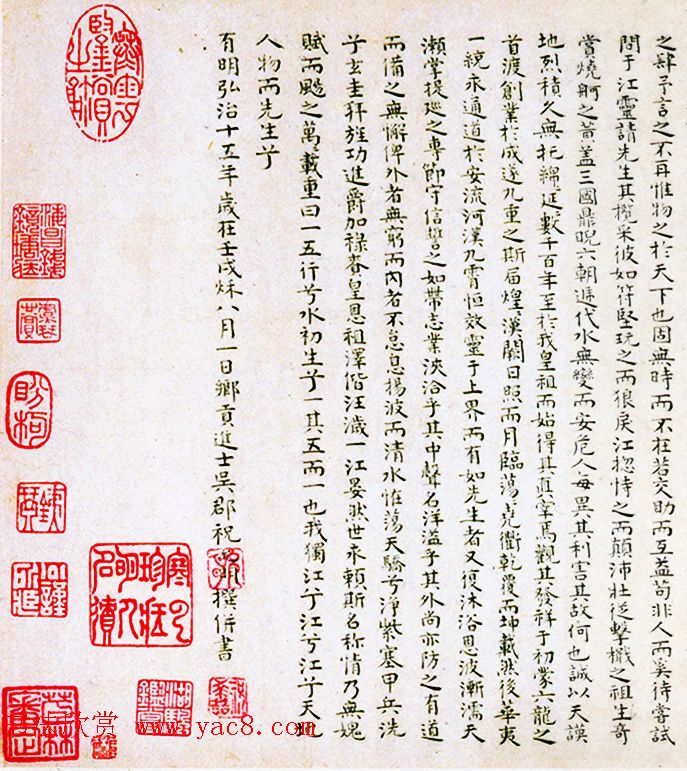 之肆予言之不再惟物之於天下也固無時而不在若交助而互益苟非人而奚待嘗試
問于江靈請先生其攬采彼如符堅玩之而狼戾江揔恃之而顛沛壯擊檝之祖生奇
賞燒舸之黃蓋三國鼎睨六朝遞代水無變而安危人每異其利害其故何也誠以天謨
地烈積久無托綿延數千百年至於我皇祖而始得其真宰焉觀其發祥于初蒙六龍之
首渡創業於成遂九重之斯届煌漢闕日照而月臨蕩尭衢乾覆而坤載然後華夷
一統永通道於安流河漢九霄恒效靈于上界而有如先生者又復沐浴恩波漸濡天
瀨掌提巡之專節守信誓之如帶志業浹洽乎其中聲名洋溢乎其外尚亦防之有道
而備之無懈俾外者無窮而內者不怠息揚波而清水惟蕩天驕兮淨紫塞甲兵洗
兮玄圭拜旌功進爵加祿賚皇恩祖澤偕汪濊一江晏然世永賴斯名称情乃無媿
賦而颺之萬載重曰一五行兮水初生兮一其五而一也我獨江兮江兮江兮天地
人物而先生兮
有明弘治十五年歲在壬戌秌八月一日鄉貢進士吳郡祝允明撰併書
欣赏 www.yac8.com